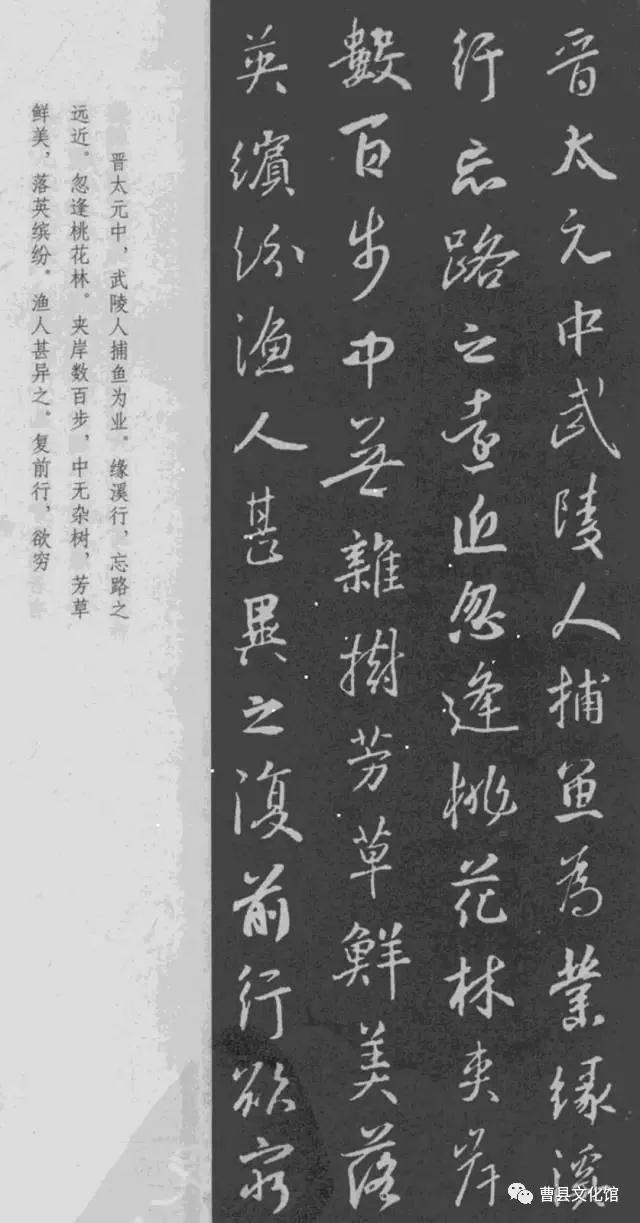 晋太元中武陵人捕鱼為業緣溪
行忘路之遠近忽逢桃花林夾岸
數百步中無雜樹芳草鮮美落
英繽紛漁人甚異之復前行欲窮
晋太元中，武陵人捕鱼为业。缘溪行，忘路之
远近。忽逢桃花林。夹岸数百步，中无杂树，芳草
鲜美，落英缤纷。渔人甚异之。复前行，欲穷
曹县文化馆